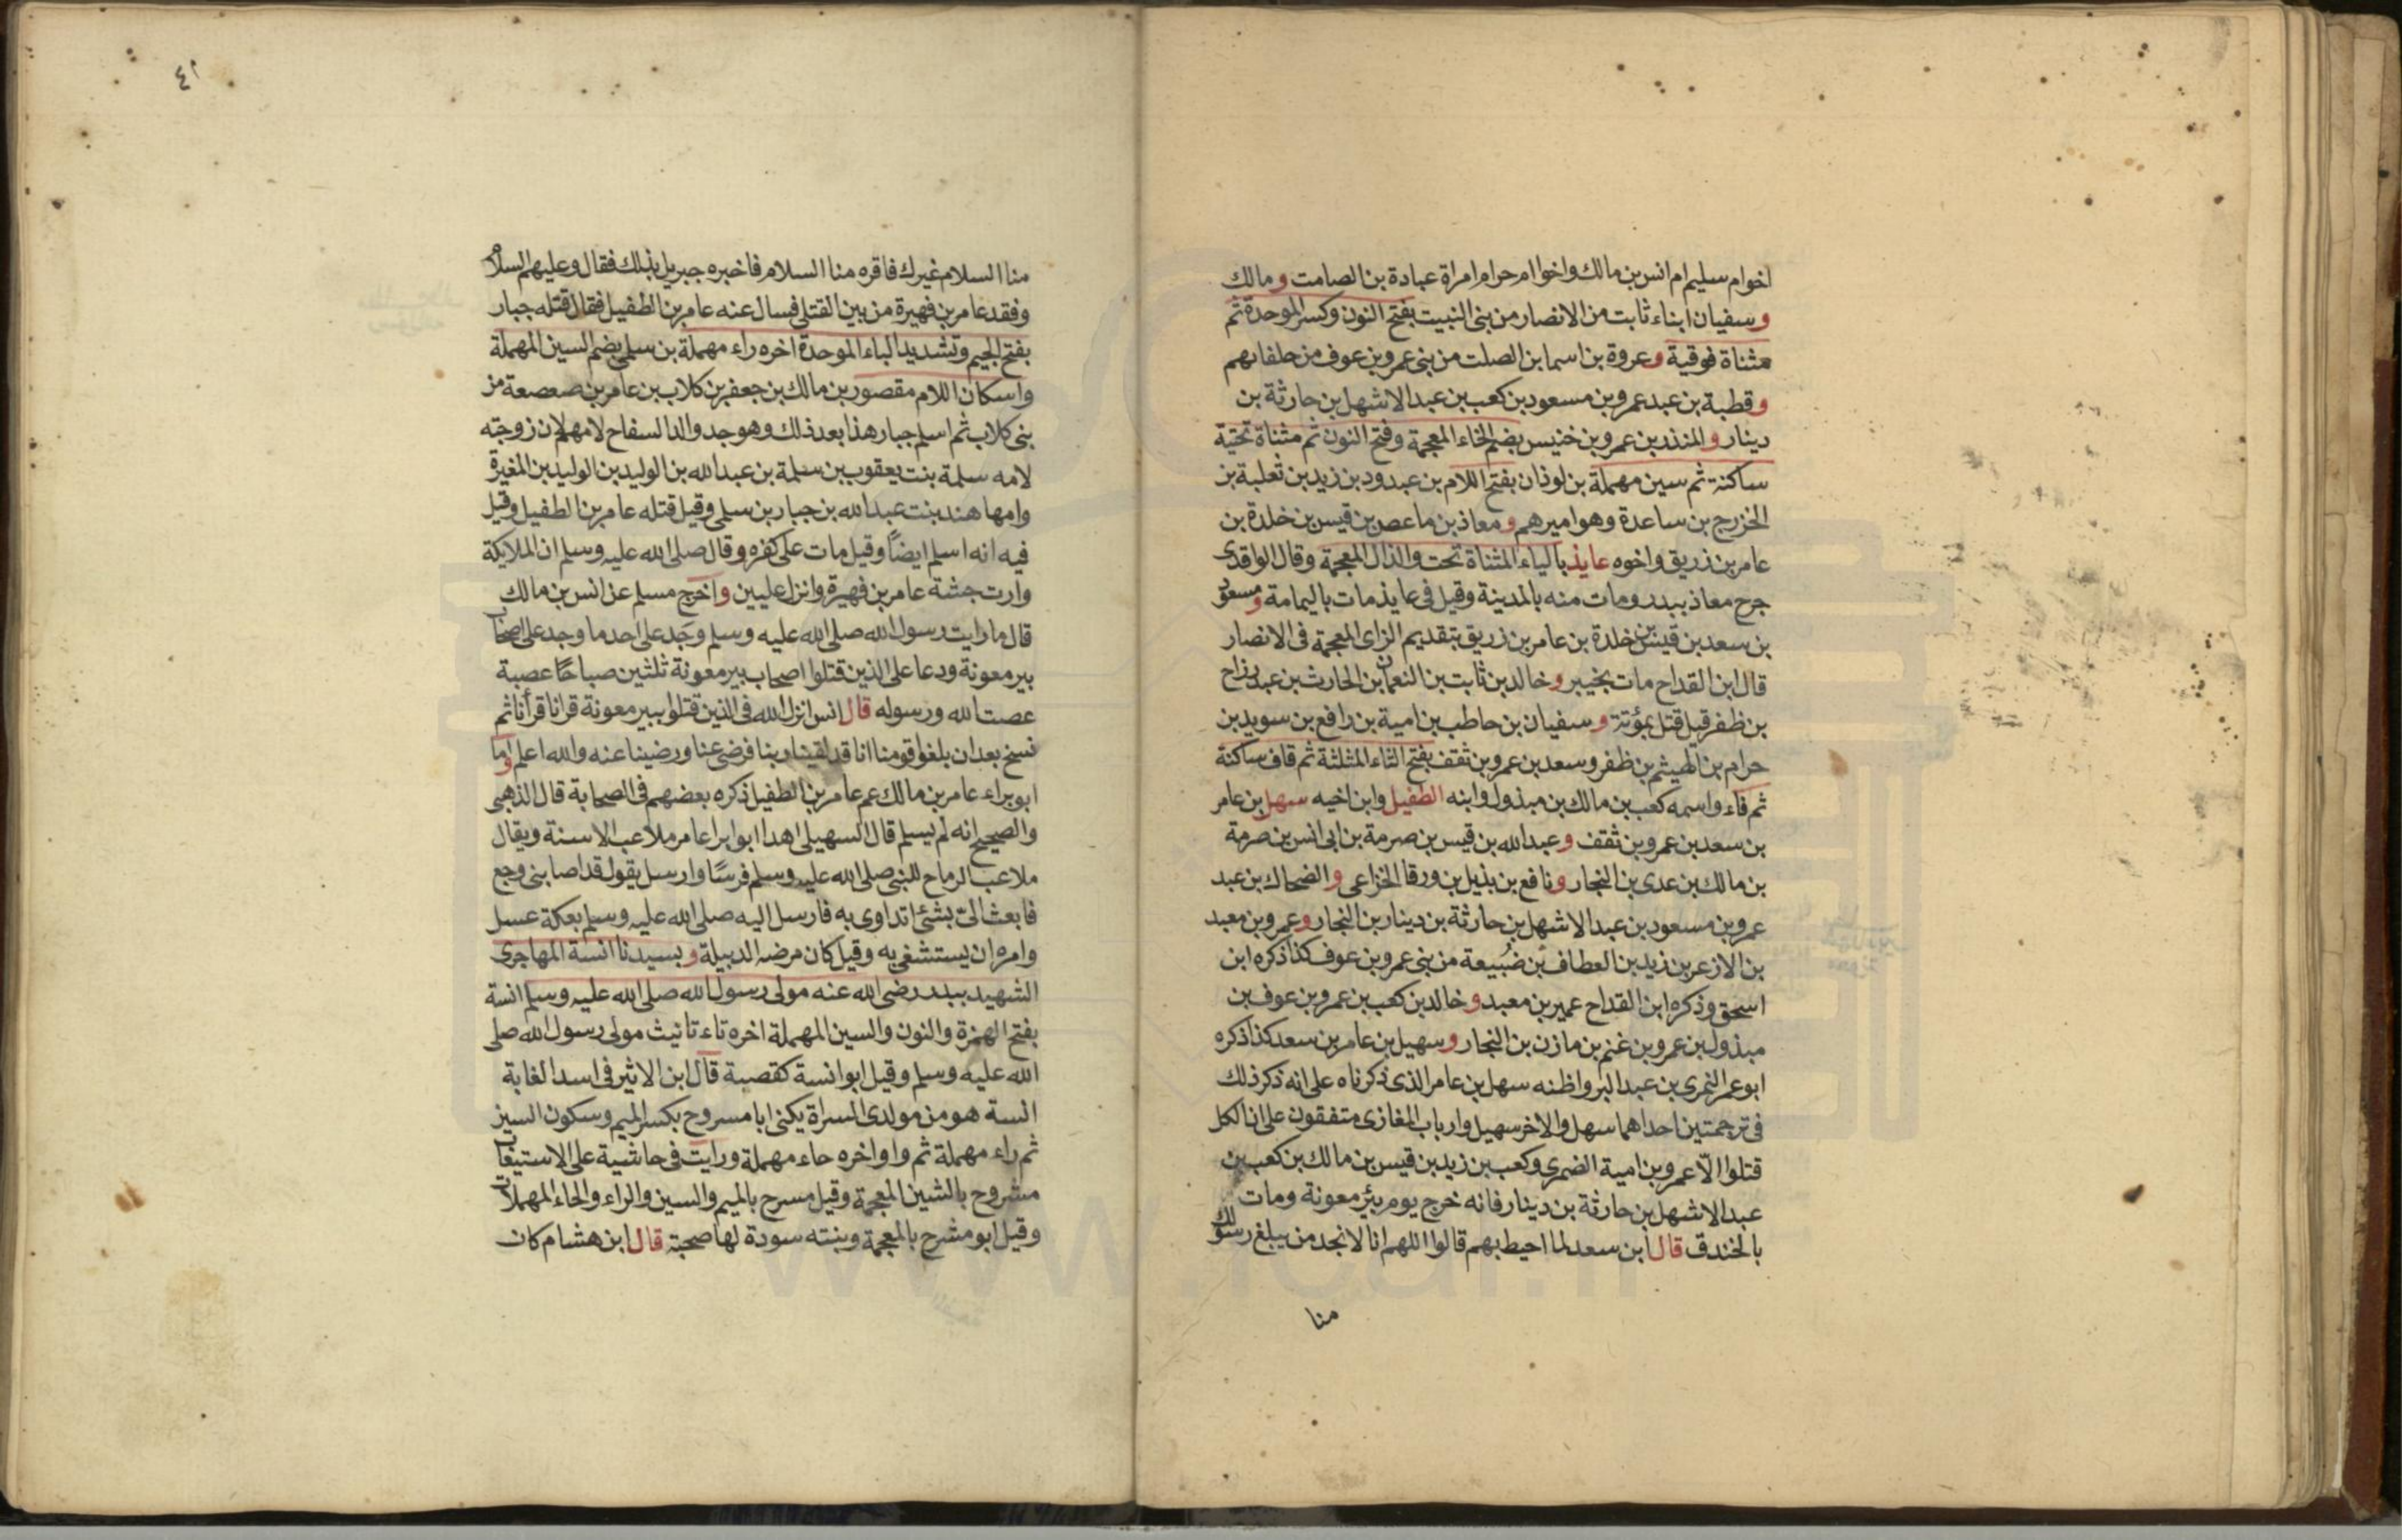 اخو ام سليم ام انس بن مالك واخوا ام حرام امراة عبادة بن الصامت ومالك
وسفيان ابناء ثابت من الانصار من بنى النبيت بفتح النون وكسر الموحدة ثم
مثناة فوقية وعروة بن اسما بن الصلت من بنى عمرو بن عوف من حلفائهم
وقطبة بن عبد عمرو بن مسعود بن كعب بن عبد الاشهل بن حارثة بن
دينار والمنذر بن عمرو بن خنيس بضم الخاء المعجمة وفتح النون ثم مثناة تحتية
ساكنة ثم سين مهملة بن لوذان بفتح اللام بن عبدود بن زيد بن ثعلبة بن
الخزرج بن ساعدة وهو اميرهم ومعاذ بن ماعص بن قيس بن خلدة بن
عامر بن زريق واخوه عايذ بالياء المثناة تحت والذال المعجمة وقال الواقدى
جرح معاذ ببدر ومات منه بالمدينة وقيل فى عايذ مات باليمامة ومسعود
بن سعد بن قيس بن خلدة بن عامر بن زريق بتقديم الزاى المعجمة فى الانصار
قال ابن القداح مات بخيبر وخالد بن ثابت بن النعمان بن الحارث بن عبد رزاح
بن ظفر قيل قتل بمؤتة وسفيان بن حاطب بن امية بن رافع بن سويد بن
حرام بن الهيثم بن ظفر وسعد بن عمرو بن ثقف بفتح الثاء المثلثة ثم قاف ساكنة
ثم فاء واسمه كعب بن مالك بن مبذول وابنه الطفيل وابن اخيه سهل بن عامر
بن سعد بن عمرو بن ثقف وعبد الله بن قيس بن صرمة بن ابى انس بن صرمة
بن مالك بن عدى بن النجار ونافع بن بذيل بن ورقا الخزاعى والضحاك بن عبد
عمرو بن مسعود بن عبد الاشهل بن حارثة بن دينار بن النجار وعمرو بن معبد
بن الازعر بن زيد بن العطاف بن ضُبيعة من بنى عمرو بن عوف كذا ذكره ابن
اسحق وذكره ابن القداح عمير بن معبد وخالد بن كعب بن عمرو بن عوف بن
مبذول بن عمرو بن غنم بن مازن بن النجار وسهيل بن عامر بن سعد كذا ذكره
ابو عمر النمرى بن عبد البر واظنه سهل بن عامر الذى ذكرناه على انه ذكر ذلك
فى ترجمتين احداهما سهل والاخر سهيل وارباب المغازى متفقون على ان الكل
قتلوا الّا عمرو بن امية الضمرى وكعب بن زيد بن قيس بن مالك بن كعب بن
عبد الاشهل بن حارثة بن دينار فانه خرج يوم بئر معونة ومات
بالخندق قال ابن سعد لما احيط بهم قالوا اللهم انا لا نجد من يبلغ رسولك
منا
٤١
منا السلام غيرك فاقره منا السلام فاخبره جبريل بذلك فقال وعليهم السلام
وفقد عامر بن فهيرة من بين القتلى فسال عنه عامر بن الطفيل فقال قتله جبار
بفتح الجيم وتشديد الباء الموحدة اخره راء مهملة بن سلمى بضم السين المهملة
واسكان اللام مقصور بن مالك بن جعفر بن كلاب بن عامر بن صعصعة من
بنى كلاب ثم اسلم جبار هذا بعد ذلك وهو جد والد السفاح لامهم لان زوجته
لامه سلمة بنت يعقوب بن سلمة بن عبد الله بن الوليد بن الوليد بن المغيرة
وامها هند بنت عبد الله بن جبار بن سلمى وقيل قتله عامر بن الطفيل وقيل
فيه انه اسلم ايضاً وقيل مات على كفره وقال صلى الله عليه وسلم ان الملايكة
وارت جثته عامر بن فهيرة وانزل عليين واخرج مسلم عن انس بن مالك
قال ما رايت رسول الله صلى الله عليه وسلم وجَد على احد ما وجد على اصحاب
بير معونة ودعا على الذين قتلوا اصحاب بير معونة ثلثين صباحًا عصبة
عصت الله ورسوله قال انس انزل الله فى الذين قتلوا ببير معونة قرانا قرأنا ثم
نسخ بعد ان بلغوا قومنا انا قد لقينا ربنا فرضى عنا ورضينا عنه والله اعلم واما
ابو براء عامر بن مالك عم عامر بن الطفيل ذكره بعضهم فى الصحابة قال الذهبى
والصحيح انه لم يسلم قال السهيلى اهدا ابو ابرا عامر ملاعب الاسنة ويقال
ملاعب الرماح للنبى صلى الله عليه وسلم فرسًا وارسل يقول قد اصابنى وجع
فابعث الىّ بشئ اتداوى به فارسل اليه صلى الله عليه وسلم بعكة عسل
وامره ان يستشفى به وقيل كان مرضه الدبيلة وبسيدنا انسة المهاجرى
الشهيد ببدر رضى الله عنه مولى رسول الله صلى الله عليه وسلم انسة
بفتح الهمزة والنون والسين المهملة اخره تاء تانيث مولى رسول الله صلى
الله عليه وسلم وقيل ابو انسة كقصبة قال ابن الاثير فى اسد الغابة
انسة هو من مولدى السراة يكنى ابا مسروح بكسر الميم وسكون السين
ثم راء مهملة ثم واو اخره حاء مهملة ورايت فى حاشية على الاستيعاب
مشروح بالشين المعجمة وقيل مسرح بالميم والسين والراء والحاء المهملات
وقيل ابو مشرح بالمعجمة وبنته سودة لها صحبة قال ابن هشام كان